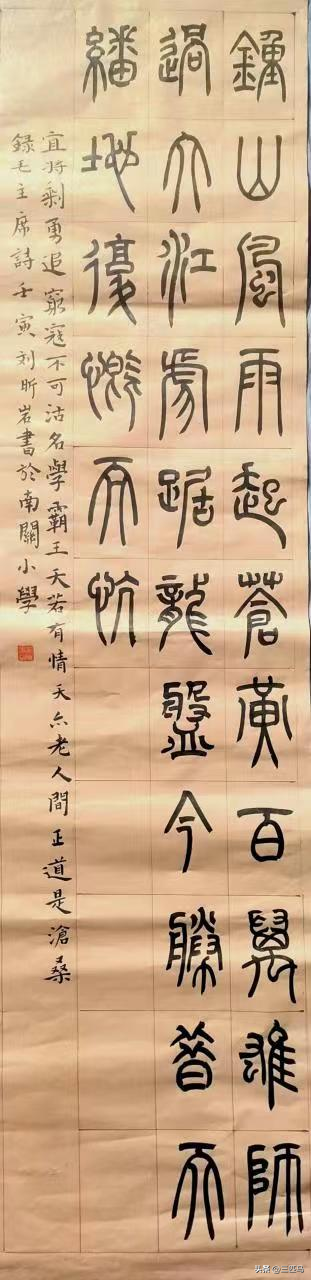 鍾山風雨起蒼黃百萬雄師
過大江虎踞龍盤今勝昔天
繙地復慨而忼
宜将剩勇追窮寇不可沽名學霸王天若有情天亦老人間正道是滄桑
録毛主席詩壬寅刘昕岩書於南關小學
头条 @三匹马